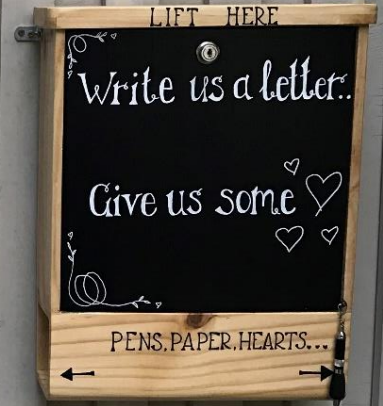 LIFT HERE
Write us a letter..
Give us some
PENS,PAPER,HEARTS...